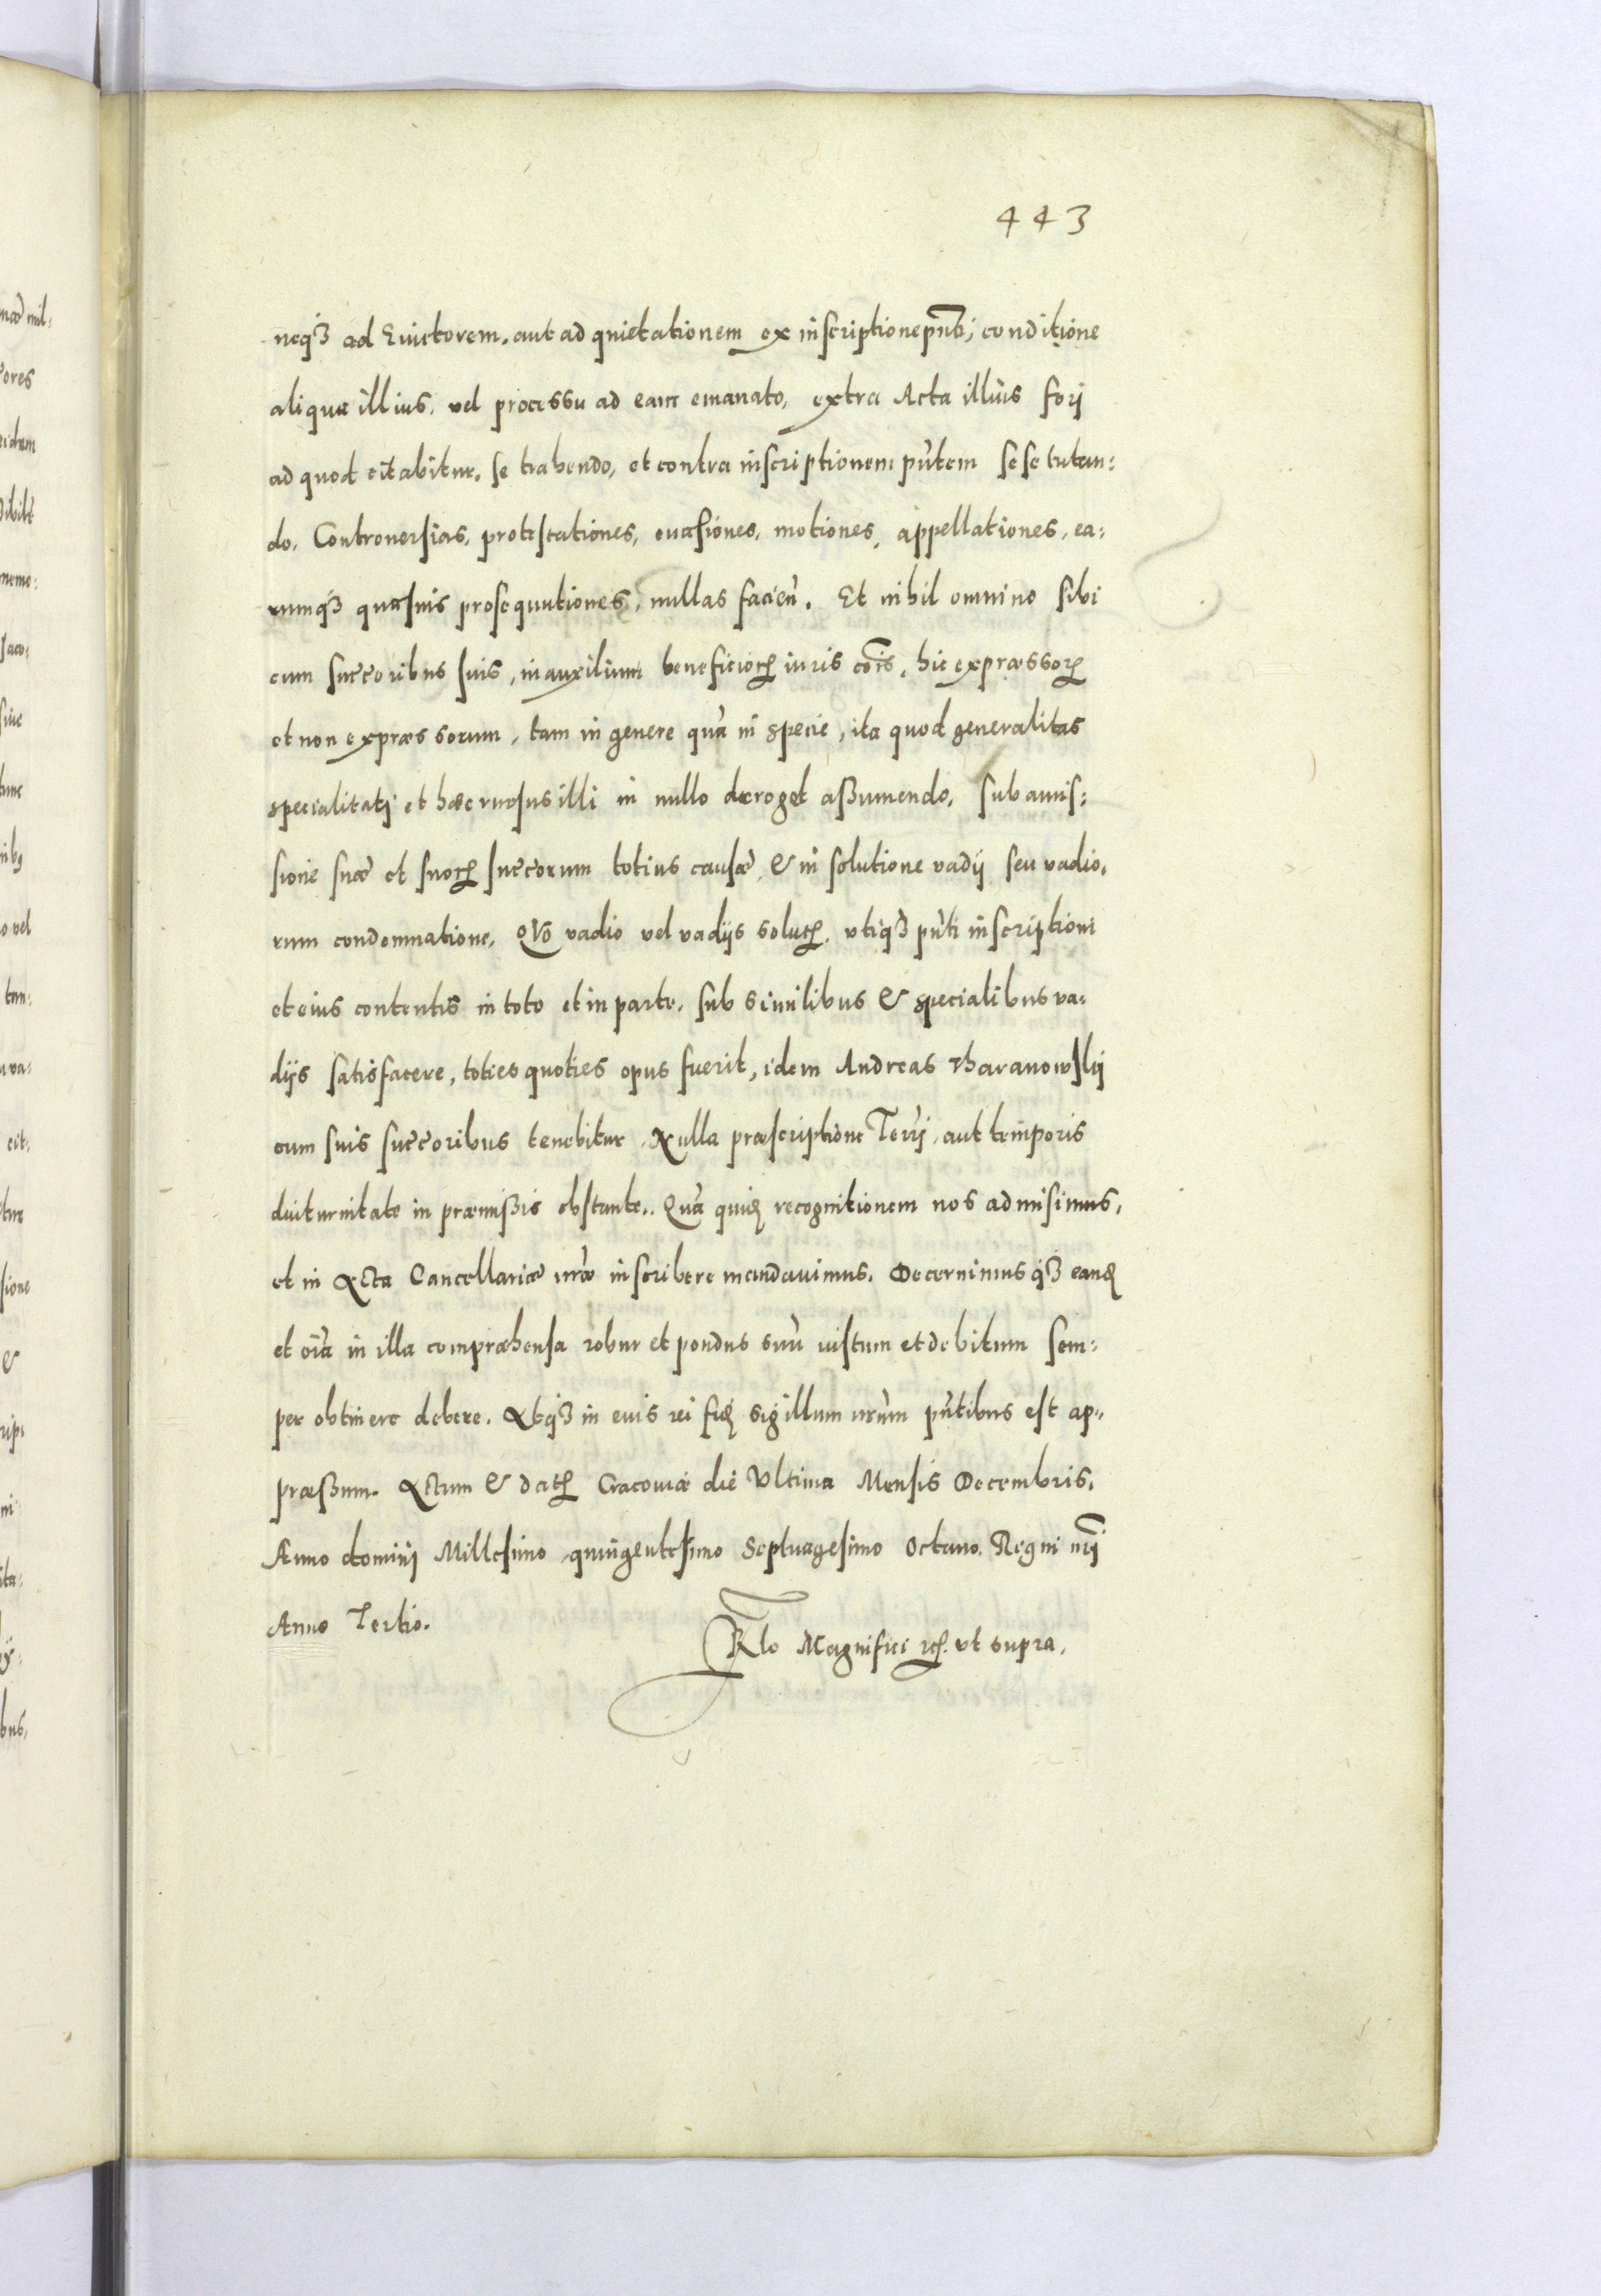 443
neqȝ ad Euictorem, aut ad quietationem ex inscriptione pñti, conditione
aliqua illius, vel processu ad eam emanato, extra Acta illius forj
ad quod citabitur, se trahendo, et contra inscriptionem pñtem sese tutan:
do, Controuersias, protestationes, euasiones, motiones, appellationes, ea:
rumqȝ quasuis prosequutiones, nullas facieñ. Et nihil omnino sibi
cum succoribus suis, in auxilium beneficiorꝝ iuris cõis, hic expræssorꝝ
et non expræssorum, tam in genere quã in specie, ita quod generalitas
specialitatj et hæc rursus illi in nullo deroget aßumendo, sub amis:
sione suæ et suorꝝ succorum totius causæ, & in solutione vadij seu vadio,
rum condemnatione, Quo vadio vel vadijs solutꝝ, vtiqȝ pñti inscriptioni
et eius contentis in toto et in parte, sub similibus & specialibus va:
dijs satisfacere, toties quoties opus fuerit, idem Andreas Tharanowskij
cum suis succoribus tenebitur, Nulla præscriptione Terrj, aut temporis
diuturnitate in præmißis obstante.. Quã quid[em] recognitionem nos admisimus,
et in Acta Cancellariæ nr̃æ inscribere mandauimus. Decernimusqȝ eand[em]
et oĩa in illa compræhensa robur et pondus suũ iustum et debitum sem:
per obtinere debere. Atqȝ in euis rei fid[em] sigillum nr̃um pñtibus est ap:
præßum. Actum & datꝝ Cracouiæ die Vltima Mensis Decembris.
Anno dominj Millesimo quingentesimo Septuagesimo Octauo. Regni nr̃i
Anno Tertio.
Rlo Magnifici rꝝ. vt supra.